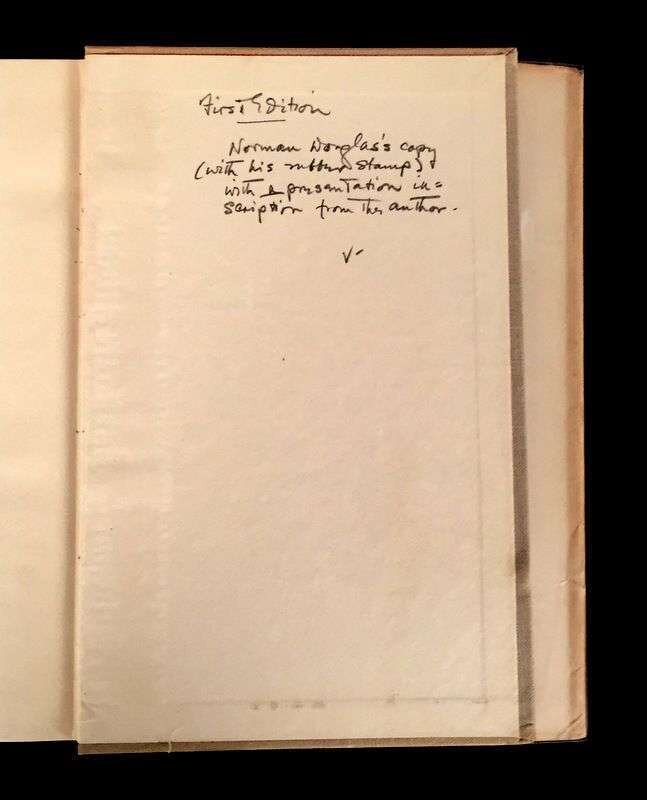 First Edition
Norman Douglas's copy
(with his rubber stamp) &
with a presentation in=
scription from the author.